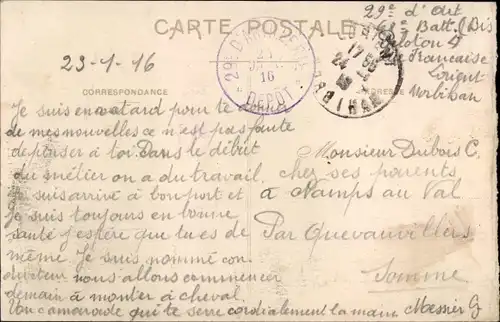 CARTE POSTALE
29e d'Art
Batt. (Bis)
Peloton 4
Française
Lorient
Morbihan
23-1-16
29e D'ARTILLERIE
16
DEPOT
LORIENT
17
24
MORBIHAN
CORRESPONDANCE
ADRESSE
Je suis en retard pour te donner
de mes nouvelles ce n'est pas faute
de penser à toi. Dans le début
du métier on a du travail.
Je suis arrivé à bon port et
je suis toujours en bonne
santé j'espère que tu es de
même. Je suis nommé con-
ducteur nous allons commencer
demain à monter à cheval.
Ton camarade qui te serre cordialement la main Messier G
Monsieur Dubois C.
chez ses parents
à Namps au Val
Par Quevauvillers
Somme